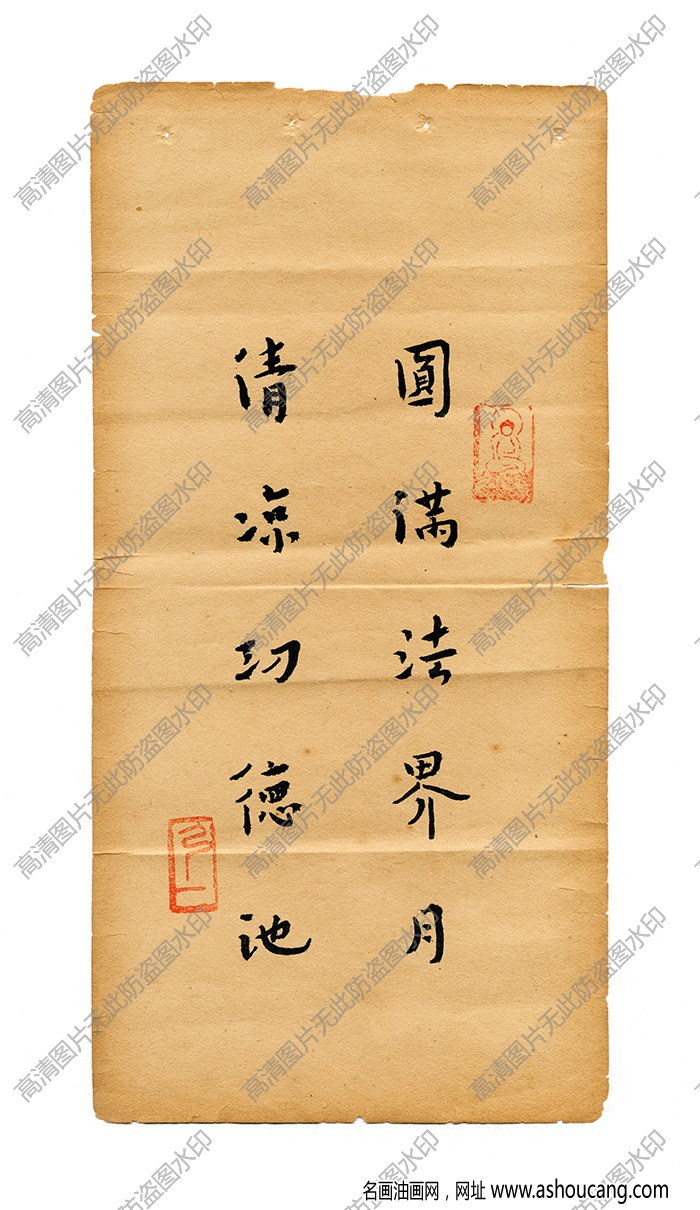 圓滿法界月
清涼功德池
名画油画网，网址 www.ashoucang.com
高清图片无此防盗图水印